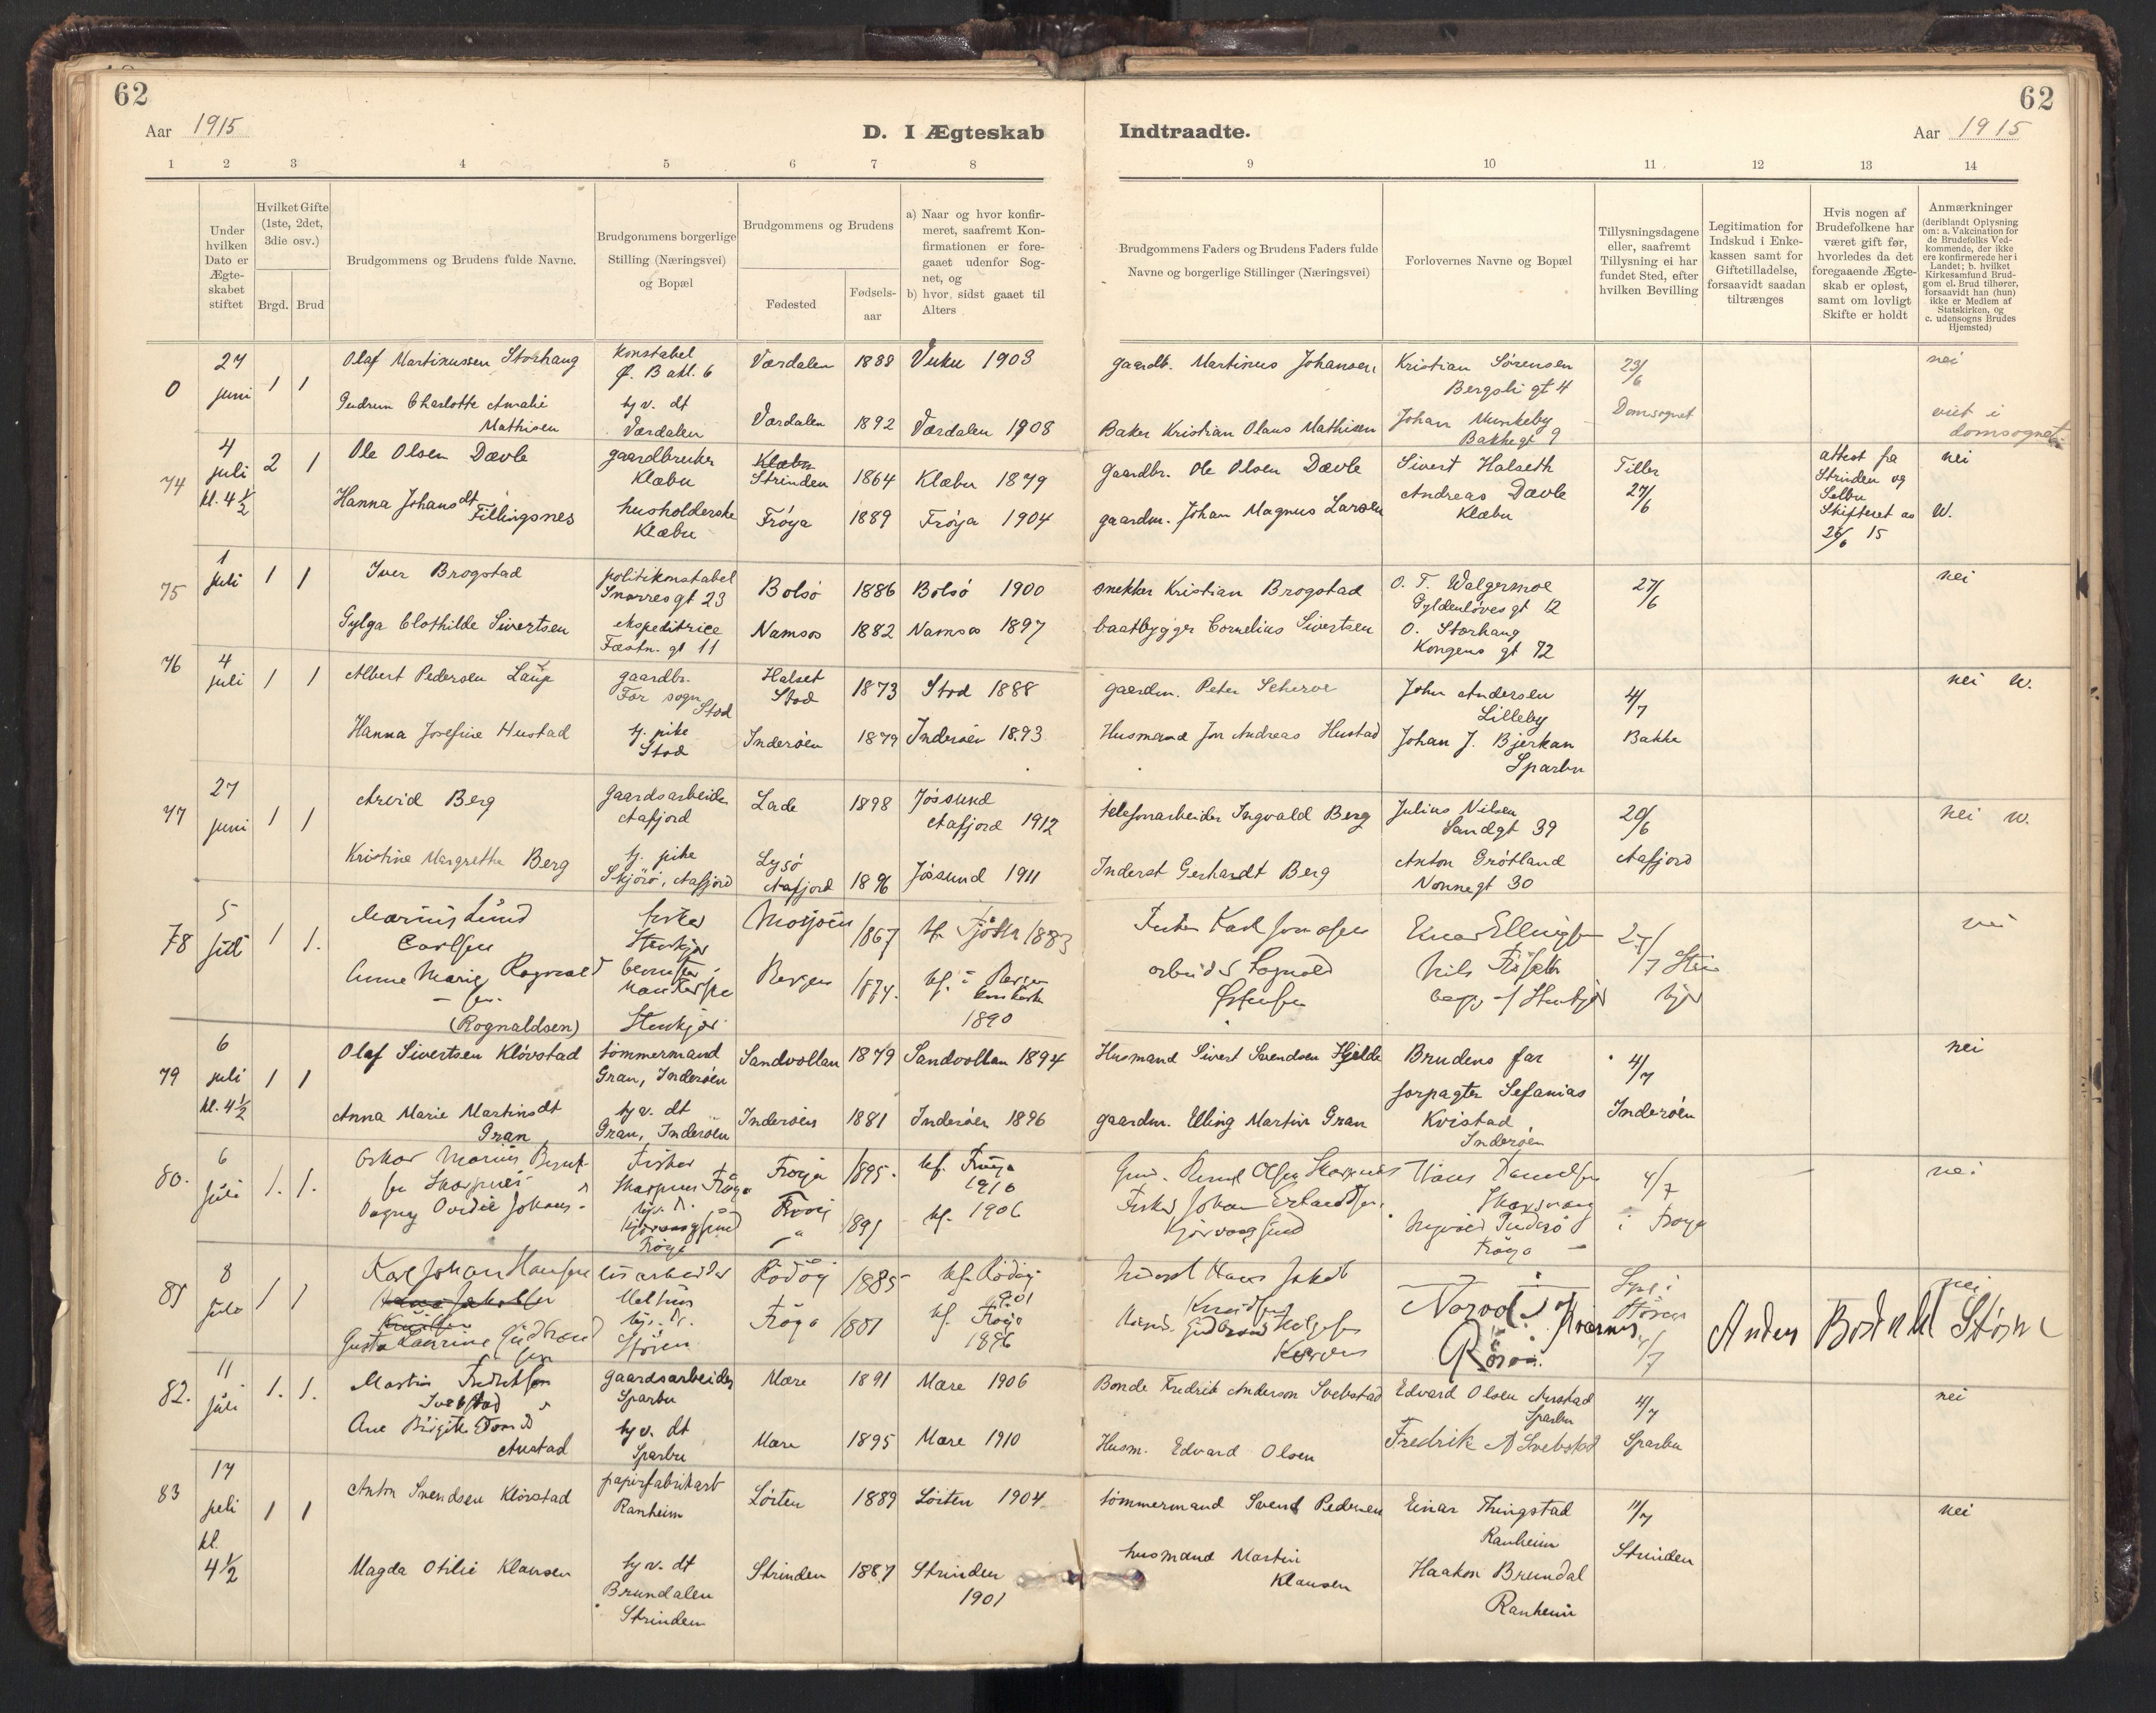 62
62
Aar 1915
D. I Ægteskab
Indtraadte.
Aar 1915
1 2 3 4 5 6 7 8
9 10 11 12 13 14
Under hvilken Dato er Ægteskabet stiftet
Hvilket Gifte (1ste, 2det, 3die osv.)
Brgd. Brud
Brudgommens og Brudens fulde Navne.
Brudgommens borgerlige Stilling (Næringsvei) og Bopæl
Brudgommens og Brudens
Fødested
Fødsels-aar
a) Naar og hvor konfirmeret, saafremt Konfirmationen er foregaaet udenfor Sognet, og
b) hvor sidst gaaet til Alters
Brudgommens Faders og Brudens Faders fulde Navne og borgerlige Stillinger (Næringsvei)
Forlovernes Navne og Bopæl
Tillysningsdagene eller, saafremt Tillysning ei har fundet Sted, efter hvilken Bevilling
Legitimation for Indskud i Enkekassen samt for Giftetilladelse, forsaavidt saadan tiltrænges
Hvis nogen af Brudefolkene har været gift før, hvorledes da det foregaaende Ægteskab er opløst, samt om lovligt Skifte er holdt
Anmærkninger
(deriblandt Oplysning om: a. Vakcination for de Brudefolks Vedkommende, der ikke ere konfirmerede her i Landet; b. hvilket Kirkesamfund Brudgom el. Brud tilhører, forsaavidt han (hun) ikke er Medlem af Statskirken, og c. udensogns Brudes Hjemsted)
0 27 juni 1 1 Olaf Martinussen Storhaug konstabel Ø. Bakl. 6 Værdalen 1888 Vuku 1903 gaardb. Martinus Johansen Kristian Sørensen Bergsli gt 4 23/6 nei
Gudrun Charlotte Amalie Mathisen hjv. dt Værdalen Værdalen 1892 Værdalen 1908 Baker Kristian Olaus Mathisen Johan Munkeby Bakkegt 9 Domsognet viet i domsognet
74 4 juli kl. 4 1/2 2 1 Ole Olsen Dævle gaardbruker Klæbu Klæbu Strinden 1864 Klæbu 1879 Gaardbr. Ole Olsen Dævle Sivert Halseth Tiller 27/6 attest fra Strinden og Selbu Skifteret av 26/6 15 nei
Hanna Johansdt Fillingsnes husholderske Klæbu Frøya 1889 Frøya 1904 gaardm. Johan Magnus Larsen Andreas Dævle Klæbu W.
75 1 juli 1 1 Iver Brogstad politikonstabel Snorresgt 23 Bolsø 1886 Bolsø 1900 snekker Kristian Brogstad O. T. Walgermoe Gyldenløvesgt 12 27/6 nei
Gylga Clothilde Sivertsen ekspeditrice Fæstn. gt 11 Namsos 1882 Namsos 1897 baatbygger Cornelius Sivertsen O. Storhaug Kongens gt 72
76 4 juli 1 1 Albert Pedersen gaardbr. For sogn Stod Halset Stod 1873 Stod 1888 gaardm. Peter John Andersen Lilleby 4/7 nei W.
Hanna Josefine Hustad hj. pike Stod Inderøen 1879 Inderøen 1893 Husmand Jon Andreas Hustad Johan J. Bjerkan Sparbu Bakke
77 27 juni 1 1 Arvid Berg Gaardsarbeider Aafjord Lade 1898 Jøssund Aafjord 1912 telefonarbeider Ingvald Berg Julius Nilsen Sandgt 39 20/6 nei W.
Kristine Margrethe Berg hj. pike Skjørø, Aafjord Lysø Aafjord 1896 Jøssund 1911 Inderst Gerhardt Berg Anton Grøtland Nonnegt 30 Aafjord
78 5 juli 1 1. Marius Lund Carlsen Stenkjær Mosjøen 1867 kf. Tjøtta 1883 nei
Anne Marie Rognald sen. (Rognaldsen) Stenkjær Bergen 1874. kf. i Bergen 1890
79 6 juli kl. 4 1/2 1 1 Olaf Sivertsen Kløvstad tømmermand Gran, Inderøen Sandvollan 1879 Sandvollan 1894 Husmand Sivert Svendsen Hjelde Brudens far 4/7 nei
Anna Marie Martinsdt Gran hjv. dt Gran, Inderøen Inderøen 1881 Inderøen 1896 gaardm. Elling Martin Gran forpagter Sefanias Kvistad Inderøen Inderøen
80. 6 juli 1. 1. Oskar Marius Fisker Frøya 1895. kf. Frøya 1910 4/7 nei
Dagny Ovidie Johans Frøya 1891 kf. 1906 Fisker Johan i Frøya
81 8 juli 1 1 Karl Johan Hansen Rødøy 1885 kf. Rødøy 1901 nei
Gusta Laurine Gudbrand sen Støren Frøya 1881 kf. Frøya 1896 Røros. 4/7
82. 11 juli 1. 1. Martin Fredriksen Svebstad gaardsarbeider Sparbu Mære 1891 Mære 1906 Bonde Fredrik Anderson Svebstad Edvard Olsen Austad Sparbu 4/7 nei
Austad hjv. dt Sparbu Mære 1895 Mære 1910 Husm. Edvard Olsen Fredrik A Svebstad Sparbu
83 17 juli kl. 4 1/2 1 1 Anton Svendsen Kløvstad papirfabrikarb Ranheim Løiten 1889 Løiten 1904 tømmermand Svend Pedersen Einar Thingstad Ranheim 11/7 nei
Magda Otilie Klausen hjv. dt Brundalen Strinden Strinden 1887 Strinden 1901 husmand Martin Klausen Haakon Brundal Ranheim Strinden